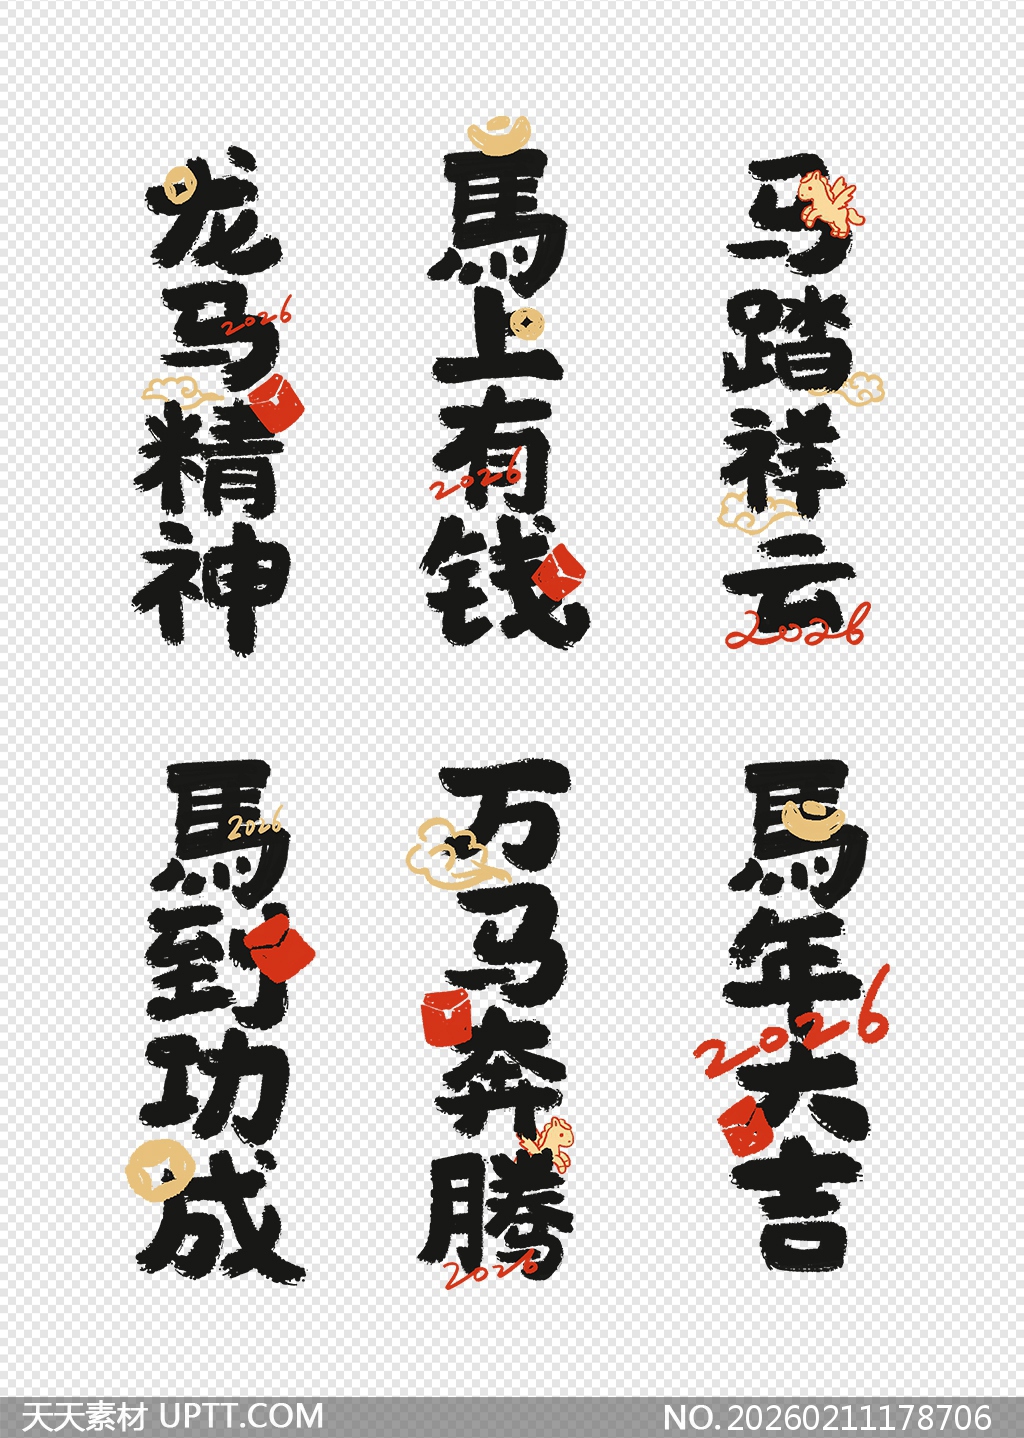 龙马精神
2026
馬上有钱
2026
马踏祥云
2026
馬到功成
2026
万马奔腾
2026
馬年大吉
2026
天天素材 UPTT.COM
NO.20260211178706